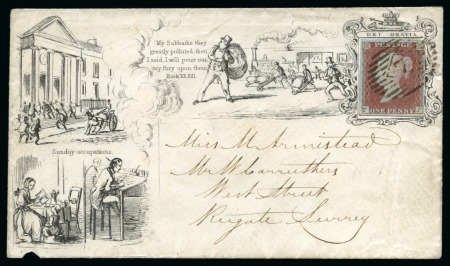 My Sabbaths they
greatly polluted: then
I said, I will pour out
my fury upon them
Ezek XX.13.
DEI GRATIA
ONE PENNY
Sunday occupations.
Miss M Armistead
Mr W Carruthers
West Street
Reigate Surrey